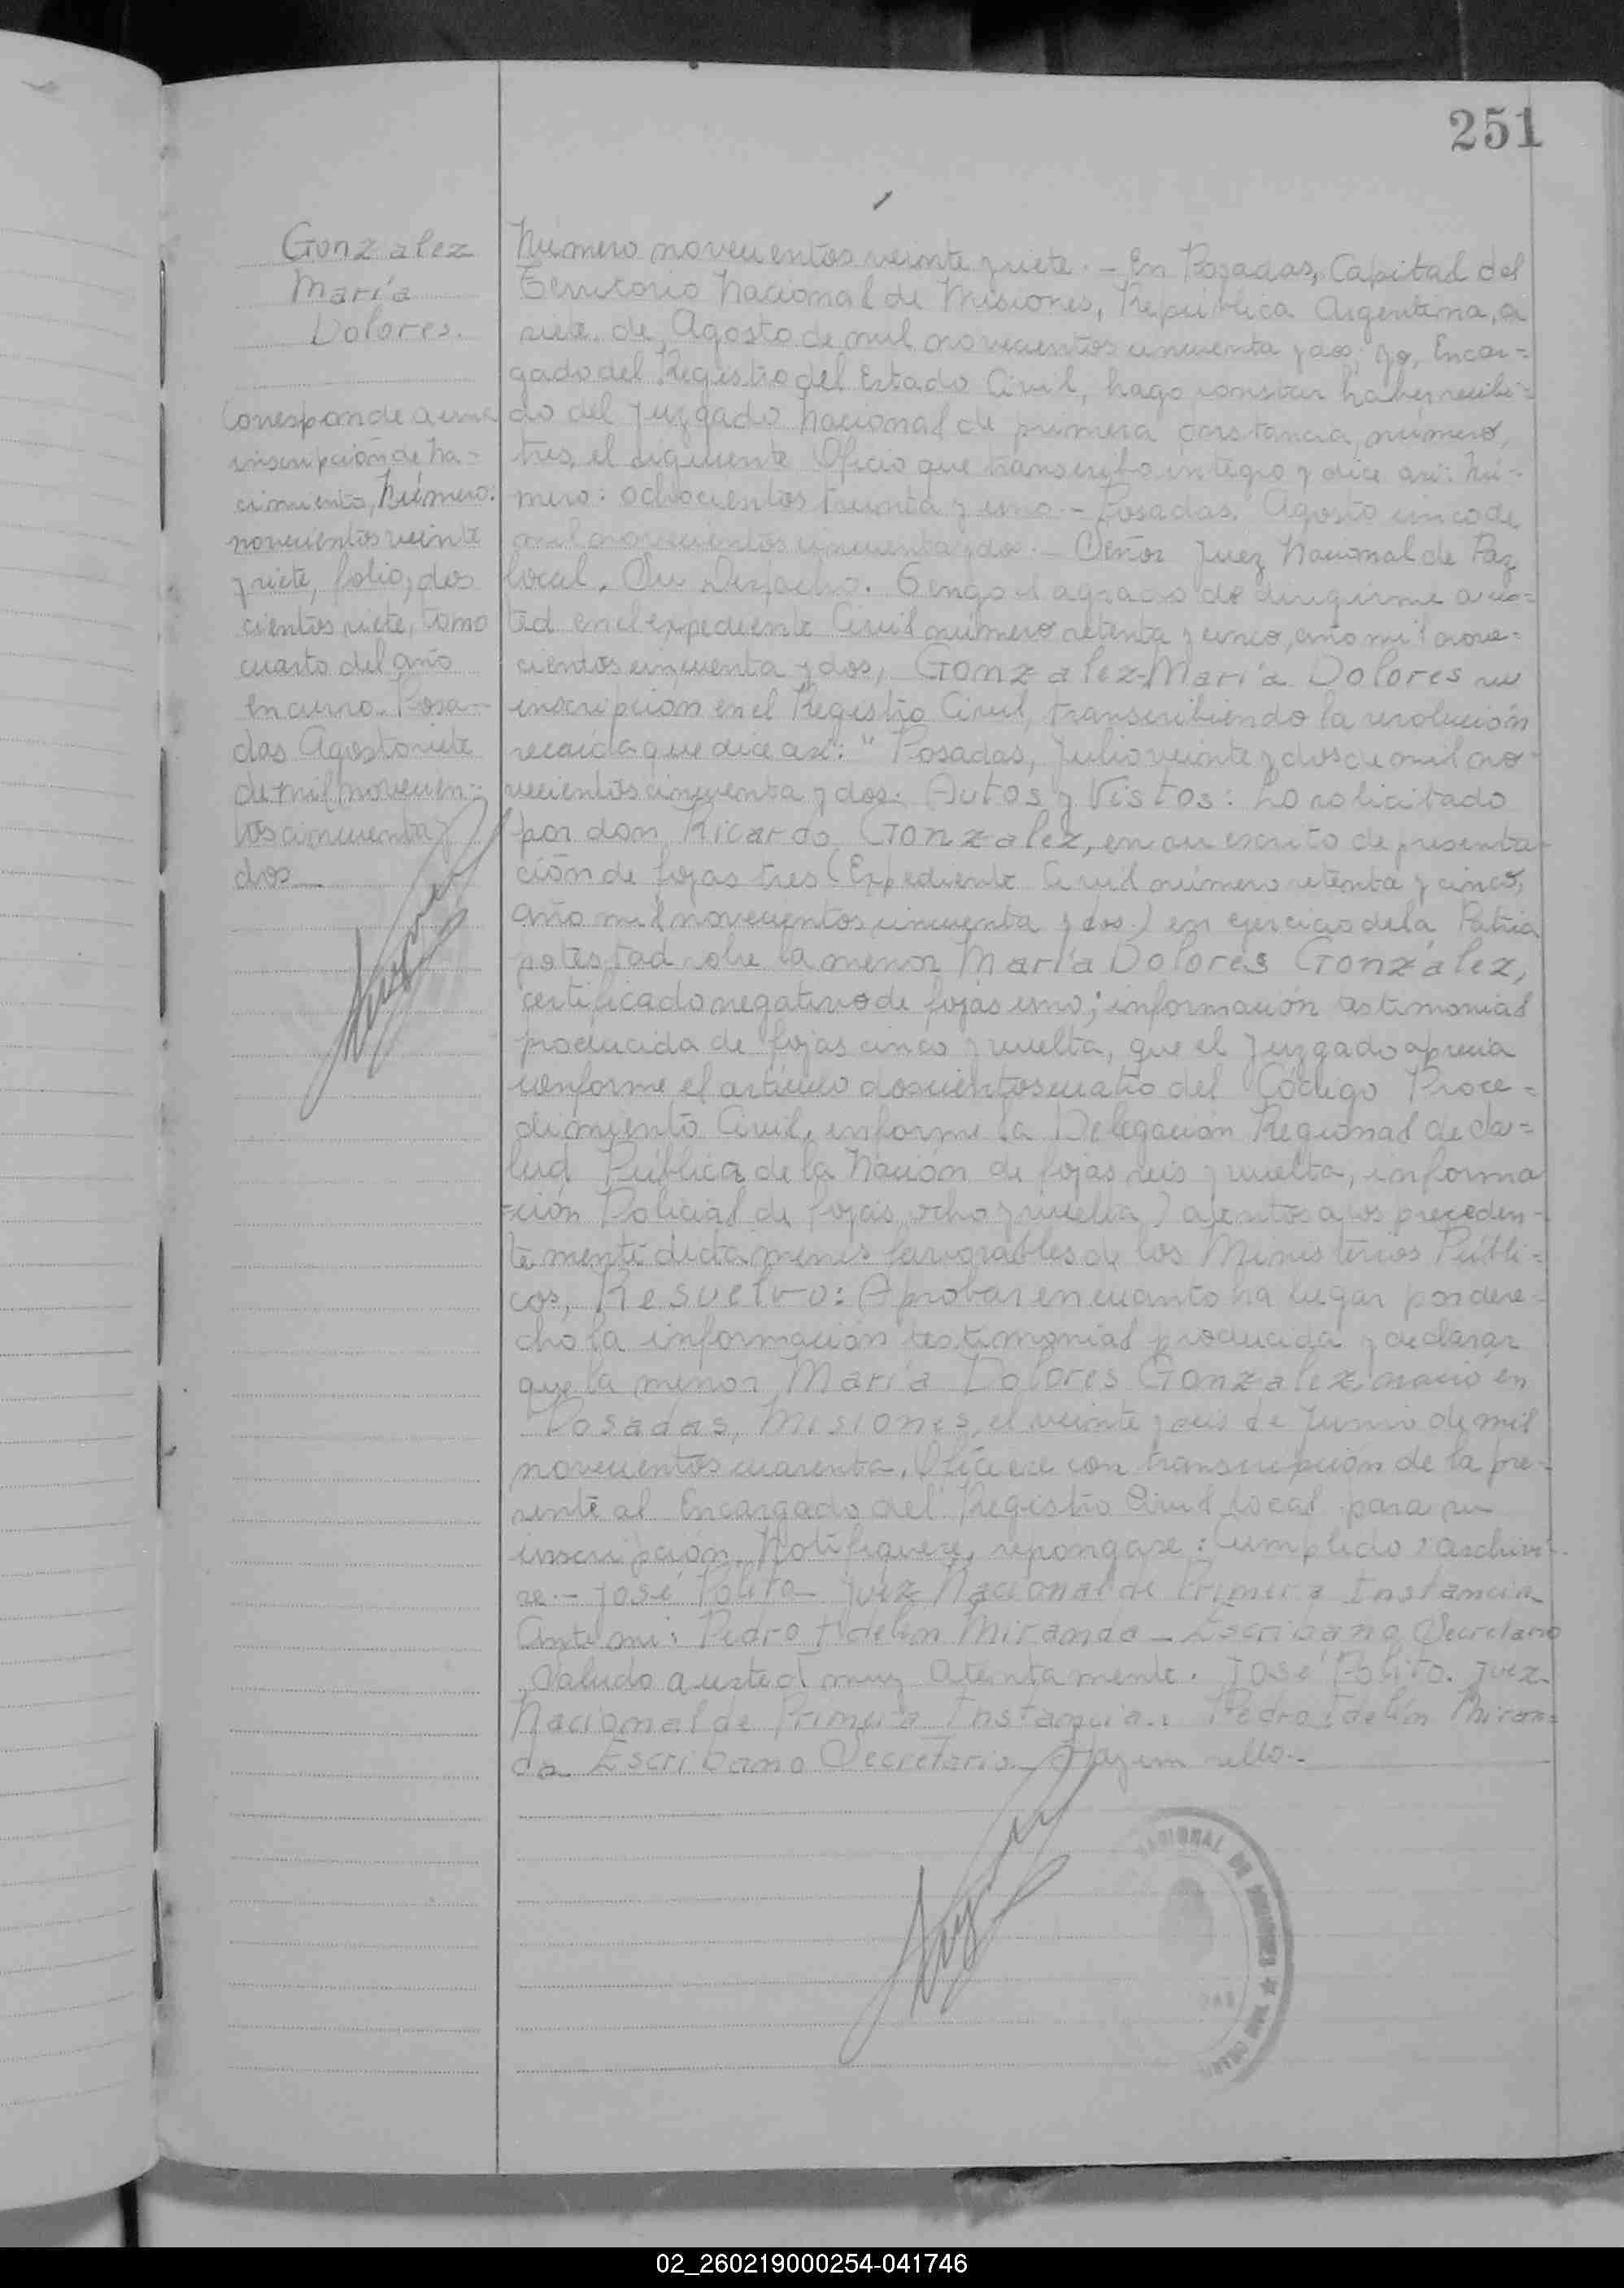 251
Gonzalez
María
Dolores.
Corresponde a una
inscripción de Na-
cimiento, Número:
novecientos veinte
y siete, folio, dos
cientos siete, tomo
cuarto del año
en curso. Posa-
das Agosto siete
de mil novecien-
tos cincuenta y
dos
Número novecientos veinte y siete. - En Posadas, Capital del
Territorio Nacional de Misiones, República Argentina, a
siete de Agosto de mil novecientos cincuenta y dos; yo, Encar=
gado del Registro del Estado Civil, hago constar haber recibi=
do del Juzgado Nacional de primera instancia, número,
tres, el siguiente Oficio que transcribo integro y dice asi: Nú-
mero: ochocientos treinta y uno - Posadas, Agosto cinco de
mil novecientos cincuenta y dos. - Señor Juez Nacional de Paz
local. Su Despacho. Tengo el agrado de dirigirme a us=
ted en el expediente Civil número setenta y cinco, año mil nove=
cientos cincuenta y dos, Gonzalez-María Dolores su
inscripción en el Registro Civil, transcribiendo la resolución
recaída que dice asi: " Posadas, Julio veinte y dos de mil no-
vecientos cincuenta y dos: Autos y Vistos: Lo solicitado
por don Ricardo Gonzalez, en su escrito de presenta-
ción de fojas tres (Expediente Civil número setenta y cinco,
año mil novecientos cincuenta y dos) en ejercicio de la Patria
potestad sobre la menor María Dolores Gonzalez,
certificado negativo de fojas uno; información testimonial
producida de fojas cinco y vuelta, que el Juzgado aprecia
conforme el artículo doscientos cuatro del Código Proce=
dimiento Civil, informe la Delegación Regional de Sa=
lud Pública de la Nación de fojas seis y vuelta, informa
=ción Policial de fojas ocho y vuelta) atentos a los preceden-
temente dictamenes favorables de los Ministerios Públi=
cos, Resuelvo: Aprobar en cuanto ha lugar por dere-
cho la información testimonial producida y declarar
que la menor María Dolores Gonzalez, nació en
Posadas, Misiones, el veinte y seis de Junio de mil
novecientos cuarenta. Oficiese con transcripción de la pre-
sente al Encargado del Registro Civil local para su
inscripción. Notifiquese, repongase: Cumplido, archive-
se. - José Polito - Juez Nacional de Primera Instancia
Ante mi: Pedro Fidelin Miranda - Escribano Secretario
Saludo a usted muy atentamente. José Polito. Juez
Nacional de Primera Instancia. Pedro Fidelin Miran=
da Escribano Secretario - Hay un sello. -
NACIONAL DE MISIONES
02_260219000254-041746